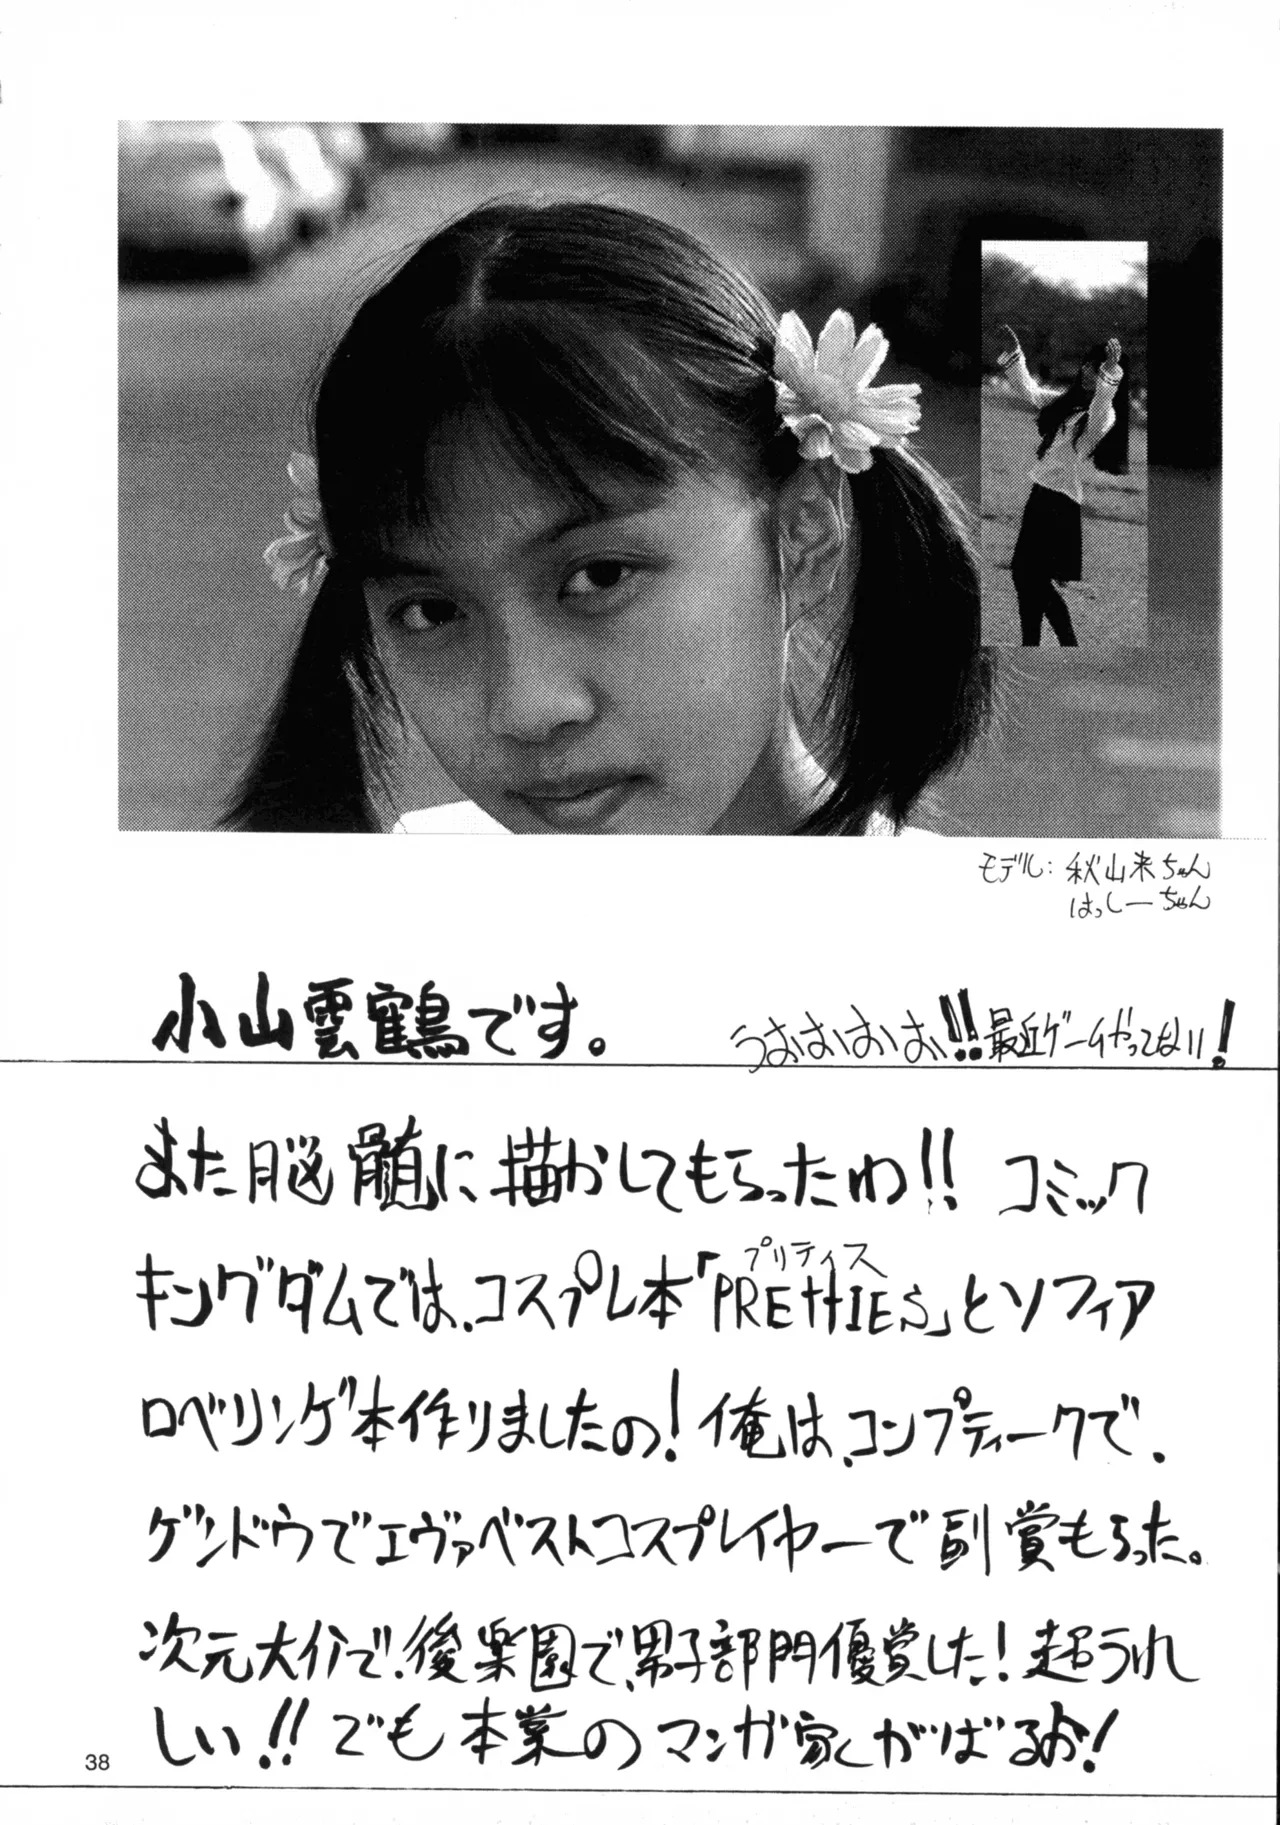 モデル: 秋山来ちゃん
はっしーちゃん
小山雲鶴です。
うおおおお!!最近ゲームやってない!
また脳髄に描かしてもらったわ!! コミック
キングダムでは、コスプレ本「PRETTIES」とソフィア
プリティス
ロベリンゲ本作りましたの! 俺は、コンプティークで、
ゲンドウでエヴァベストコスプレイヤーで副賞もらった。
次元大介で、後楽園で、男子部門優賞した! 超うれ
しい!! でも本業のマンガ家くがばるお!
38